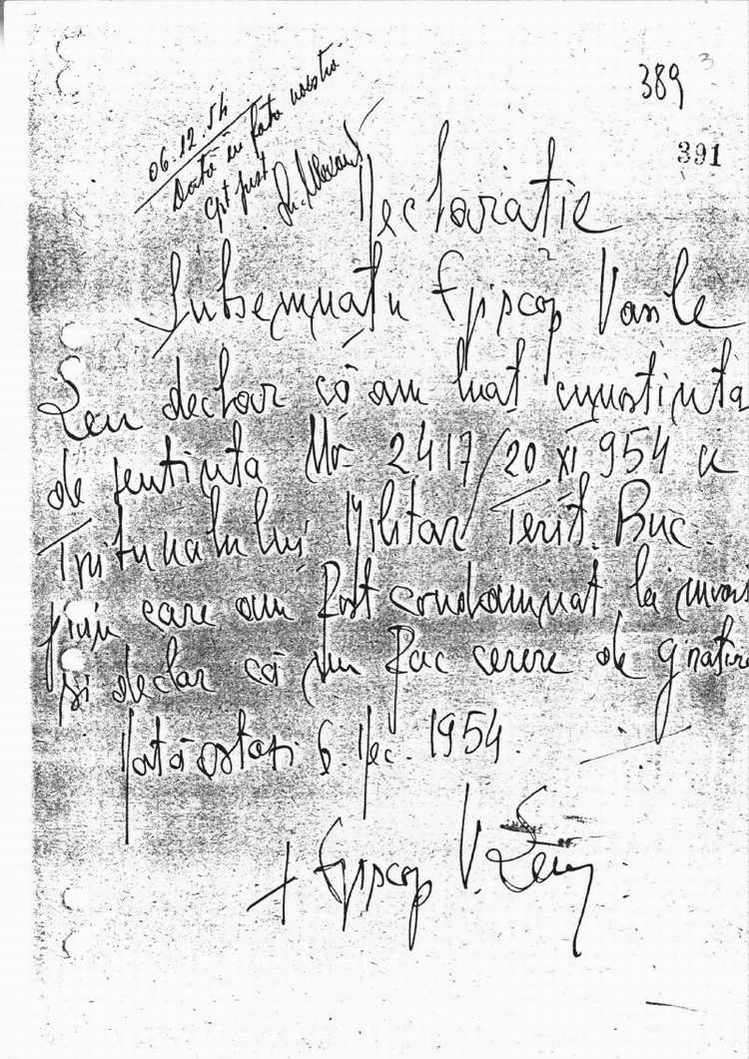 389
391
06.12.54
Dată în fața noastră
Cpt just
Declarație
Subsemnatu Episcop Vasile
Leu declar că am luat cunoștința
de sentința No 2417/20 XI 954 a
Tribunalului Militar Terit. Buc.
prin care am fost condamnat la moarte
și declar că nu fac cerere de grațiere
Dată astazi 6. Dec. 1954.
+ Episcop V. Leu